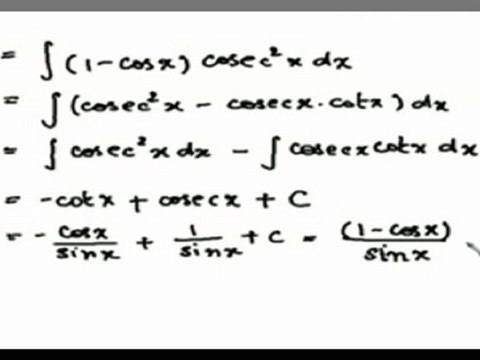 = ∫ (1 - cosx) cosec²x dx
= ∫ (cosec²x - cosecx . cotx) dx
= ∫ cosec²x dx - ∫ cosecx cotx dx
= -cotx + cosecx + C
= - cosx/sinx + 1/sinx + C = (1 - cosx)/sinx